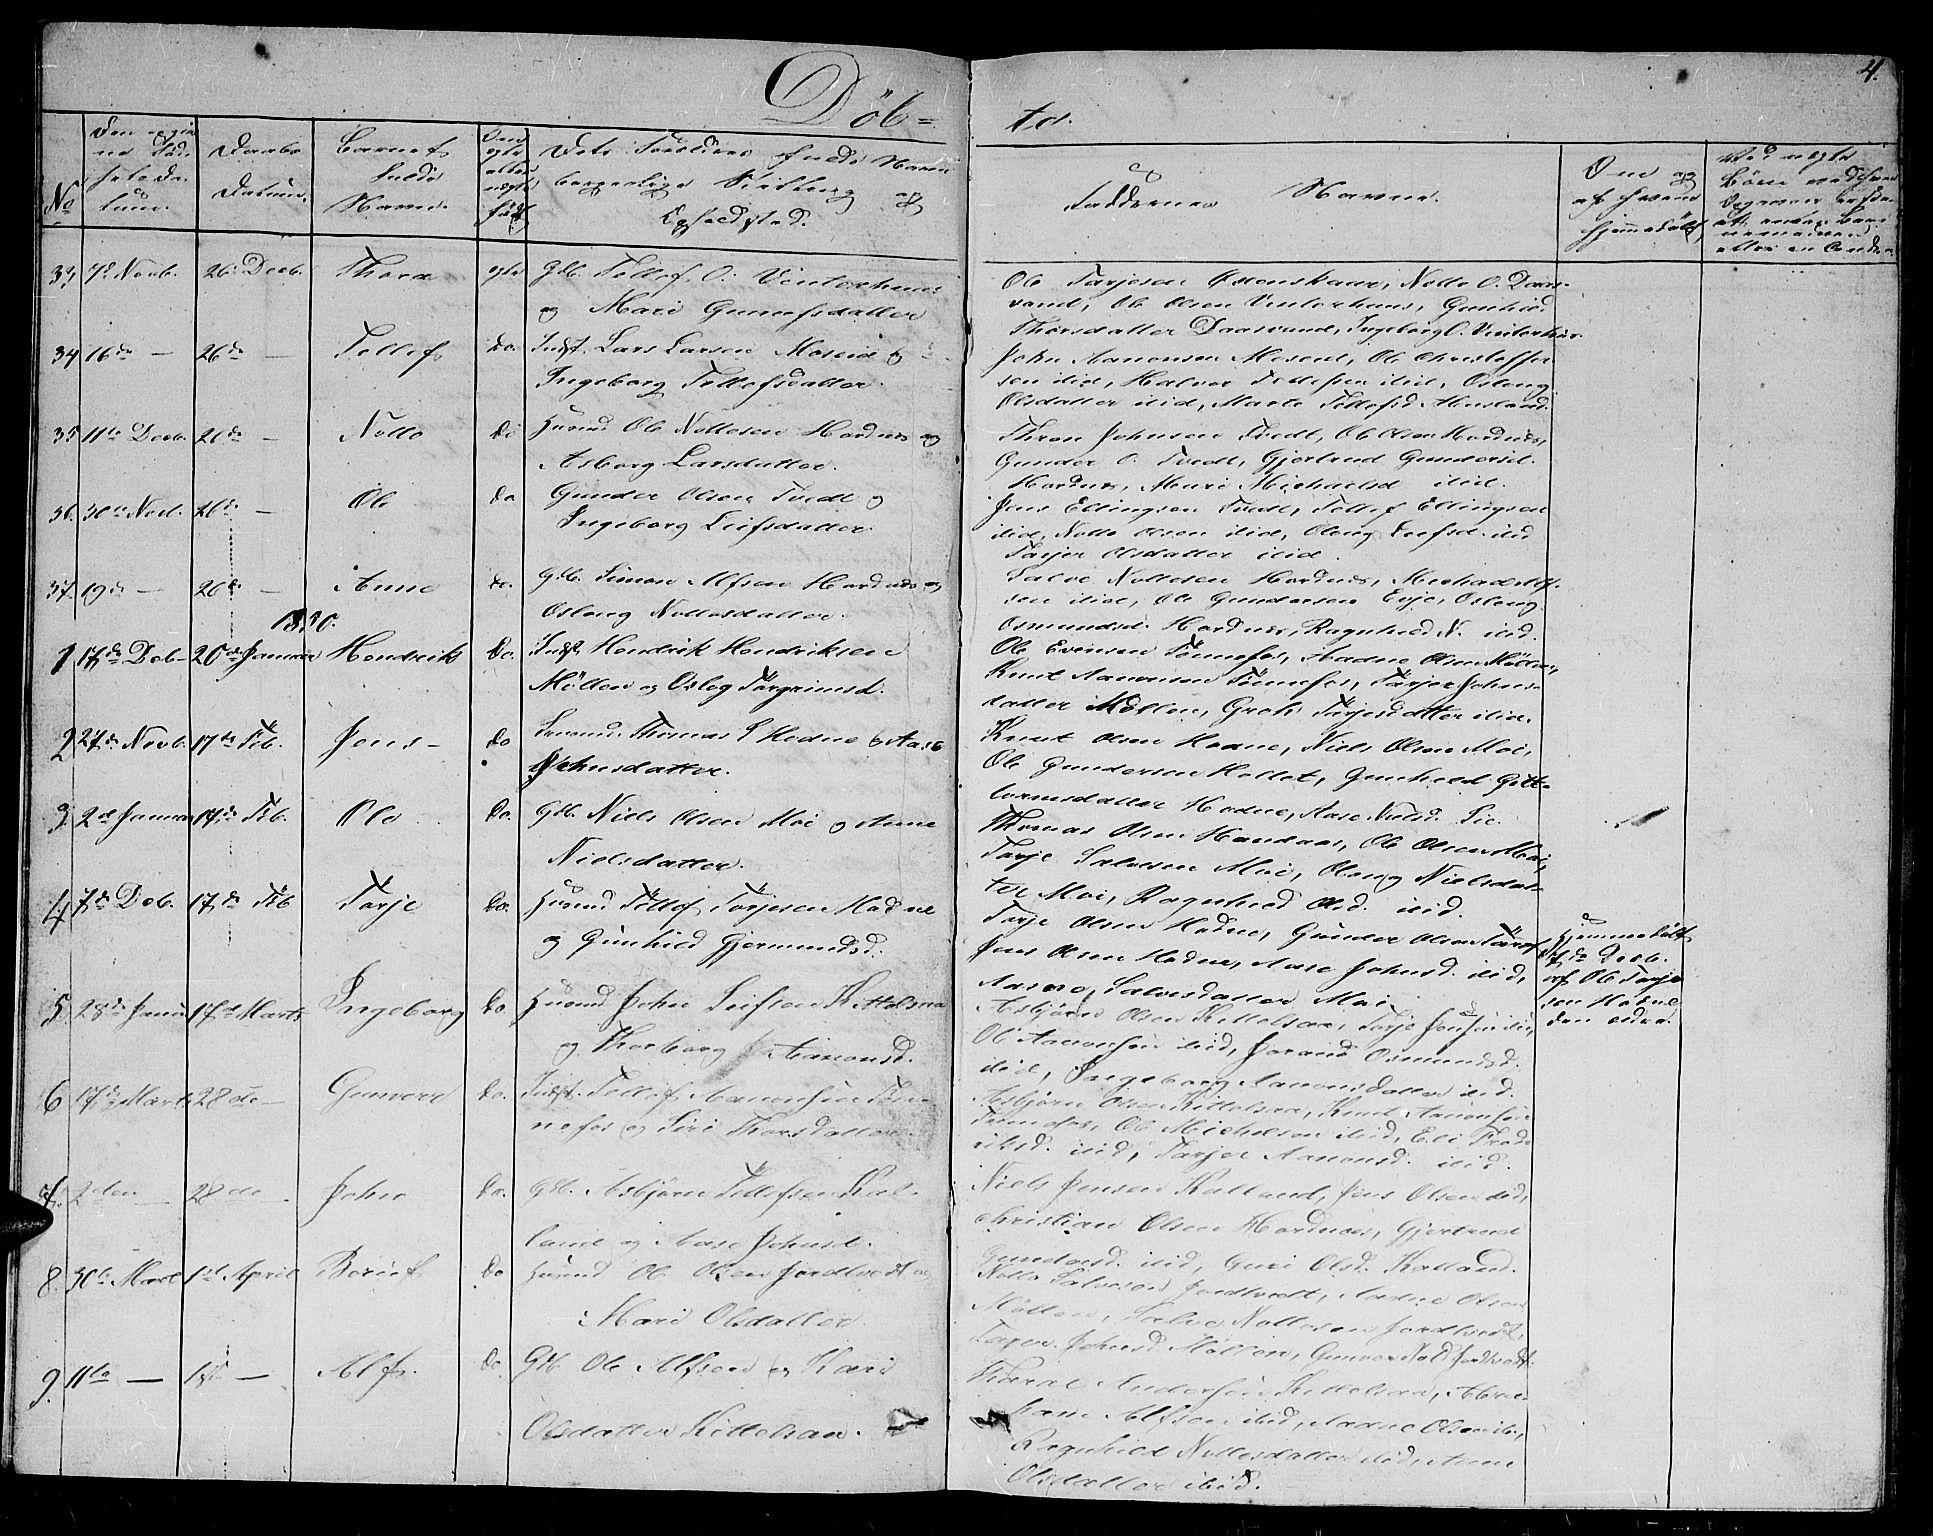 Döb=
te.
4.
No
Daabs
Datum.
Barnets
fulde
Navn.
Dets Forældres fulde Navn
borgerlige Stilling og
Opholdssted.
Faddernes Navne.
Om og
af hvem
hjemmedøbt
33 7de Novb. 26 Decb. Thora ægte Gdb. Tellef O. Vinterhuus
og Mari Gunufsdatter
Ole Tarjesen Østenskaar, Notto O. Daas-
vand, Ole Olsen Vinterhuus, Gunhild
Thorsdatter Daasvand, Ingeborg O. Vinterhuus.
34 16de — 26de — Tellef do. Indst. Lars Larsen Moseid og
Ingeborg Tellefsdatter.
John Aanonsen Moseid, Ole Christoffer-
sen ibid, Halvor ibid, Osleug
Olsdatter ibid, Marte Tellefsd.
35 11te Decb. 26de — Notto do Huusmd Ole Nottosen Hordnes og
Asborg Larsdatter.
Thron Johnsen Tvedt, Ole Olsen Hordnes,
Gunder O. Tvedt, Gjertrud Gundersd.
Hordnes, Mari Michaelsd ibid.
36. 30te Novb. 26de — Ole do Gunder Olsen Tvedt og
Ingeborg Leifsdatter.
Jens Ellingsen Tvedt, Tellef Ellingsen
ibid, Notto Olsen ibid, Osleug Leifsd. ibid
Tarjer Olsdatter ibid.
37. 19de — 26de — Anne do. Gdb. Simon Alfsen Hordnes og
Osleug Nottosdatter.
Salve Nottosen Hordnes, Michael Alf-
sen ibid, Ole Gundersen Evje, Osleug
Osmundsd. Hordnes, Ragnhild N. ibid.
1850.
1 17de Deb. 20de Januar Hendrik do. Indst. Hendrik Hendriksen
Möllen og Osleg Torgrimsd.
Ole Evensen Fennefos, Aadne Olsen Möllen,
Knut Aanonsen Fennefos, Tarjer Johns-
datter Möllen, Groh Tarjesdatter ibid.
2 27de Novb. 17de Feb. Jens — do Thomas S Hodne og Aase
Johnsdatter.
Knut Olsen Hodne, Niels Olsen Moi,
Ole Gundersen Gunhild Gutt-
ormsdatter Hodne, Aase Nielsd.
3 2de Januar 17de Feb. Ole do. Gdb. Niels Olsen Moi og Anne
Nielsdatter.
Thomas Olsen Ole Olsen Moi,
Tarje Salvesen Moi, Osleug Nielsdat-
ter Moi, Ragnhild Olsd. ibid.
4 7de Deb. 17de Feb Tarje do. Huusmd Tellef Tarjesen Hodne
og Gunhild Gjermundsd.
Tarje Olsen Hodne, Gunder Olsen
Jens Olsen Hodne, Aase Johnsd. ibid,
Salvesdatter Moi.
Hjemmedøbt
7de Decb.
af Ole Tarje
sen Hodne
den ældre.
5. 28de Januar 17de Marts Ingeborg do. Huusmd John Leifsen Kittelsaa
og Thorborg Aanonsd.
Asbjörn Olsen Kittelsaa, Tarje Jensen ibid,
Ole Aanonsen ibid, Jorand Osmundsd.
ibid, Ingeborg Aanonsdatter ibid.
6 17de Marts 28de — Gunvor do. Indst. Tellef Aanonsen Fen-
nefos og Siri Thorsdatter.
Asbjörn Olsen Kittelsaa, Knut Aanonsen
Fennefos, Ole Michelsen ibid, Eli
ibid, Tarjer Aanonsd. ibid.
7. 2den — 28de — John do. Gdb. Asbjörn Tellefsen Kal-
land og Aase Johnsd.
Niels Jensen Kalland, Jens Olsen ibid,
Christian Olsen Hordnes, Gjertrud
Gundersd. ibid, Guri Olsd. Kalland.
8. 30te Marts 1ste April Berit do Huusmd Ole Olsen Jordtvedt og
Mari Olsdatter
Notto Salvesen Jordtvedt, Aadne Olsen
Möllen, Salve Nottosen Jordtvedt,
Johnsd Möllen, Gunvor Jordtvedt.
9. 11te — 1ste — Alf. do Gdb. Ole Alfsen og Kari
Olsdatter Kittelsaa.
Andersen Kittelsaa, Abra-
ham Alfsen ibid, Aadne Olsen ib.,
Ragnhild Nottosdatter ibid, Anne
Olsdatter ibid.